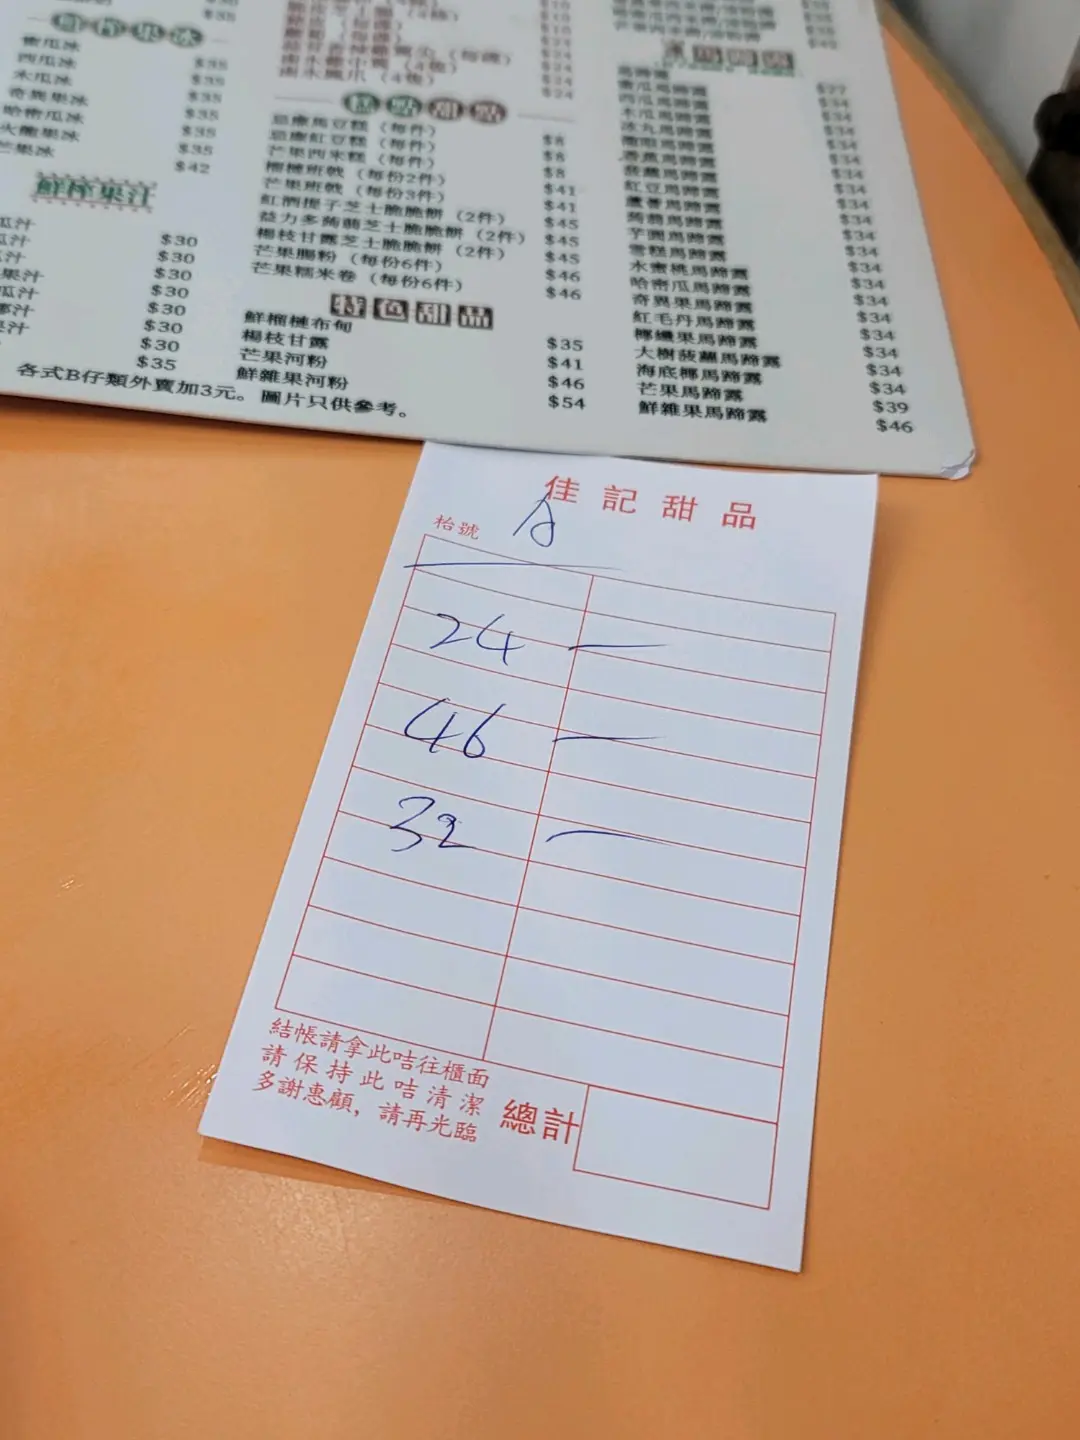 鮮榨果冰
蜜瓜冰 $35
西瓜冰 $35
木瓜冰 $35
奇異果冰 $35
哈密瓜冰 $35
火龍果冰 $35
芒果冰 $42
鮮榨果汁
瓜汁 $30
瓜汁 $30
汁 $30
果汁 $30
瓜汁 $30
椰汁 $30
果汁 $35
各式B仔類外賣加3元。圖片只供參考。
南水鳳爪（4隻） $24
糕點甜點
芒果西米糕（每件） $8
榴槤班戟（每份2件） $41
芒果班戟（每份3件） $41
紅酒提子芝士脆脆餅（2件） $45
益力多蒟蒻芝士脆脆餅（2件） $45
楊枝甘露芝士脆脆餅（2件） $45
芒果腸粉（每份6件） $46
芒果糯米卷（每份6件） $46
特色甜品
鮮榴槤布甸 $35
楊枝甘露 $41
芒果河粉 $46
鮮雜果河粉 $54
馬蹄露 $27
蜜瓜馬蹄露 $34
西瓜馬蹄露 $34
木瓜馬蹄露 $34
紅豆馬蹄露 $34
蘆薈馬蹄露 $34
蒟蒻馬蹄露 $34
芋圓馬蹄露 $34
雪糕馬蹄露 $34
水蜜桃馬蹄露 $34
哈密瓜馬蹄露 $34
奇異果馬蹄露 $34
紅毛丹馬蹄露 $34
椰纖果馬蹄露 $34
大樹菠蘿馬蹄露 $34
海底椰馬蹄露 $34
芒果馬蹄露 $39
鮮雜果馬蹄露 $46
佳記甜品
枱號 A
24 一
46 一
32 一
結帳請拿此咭往櫃面
請保持此咭清潔
多謝惠顧，請再光臨
總計